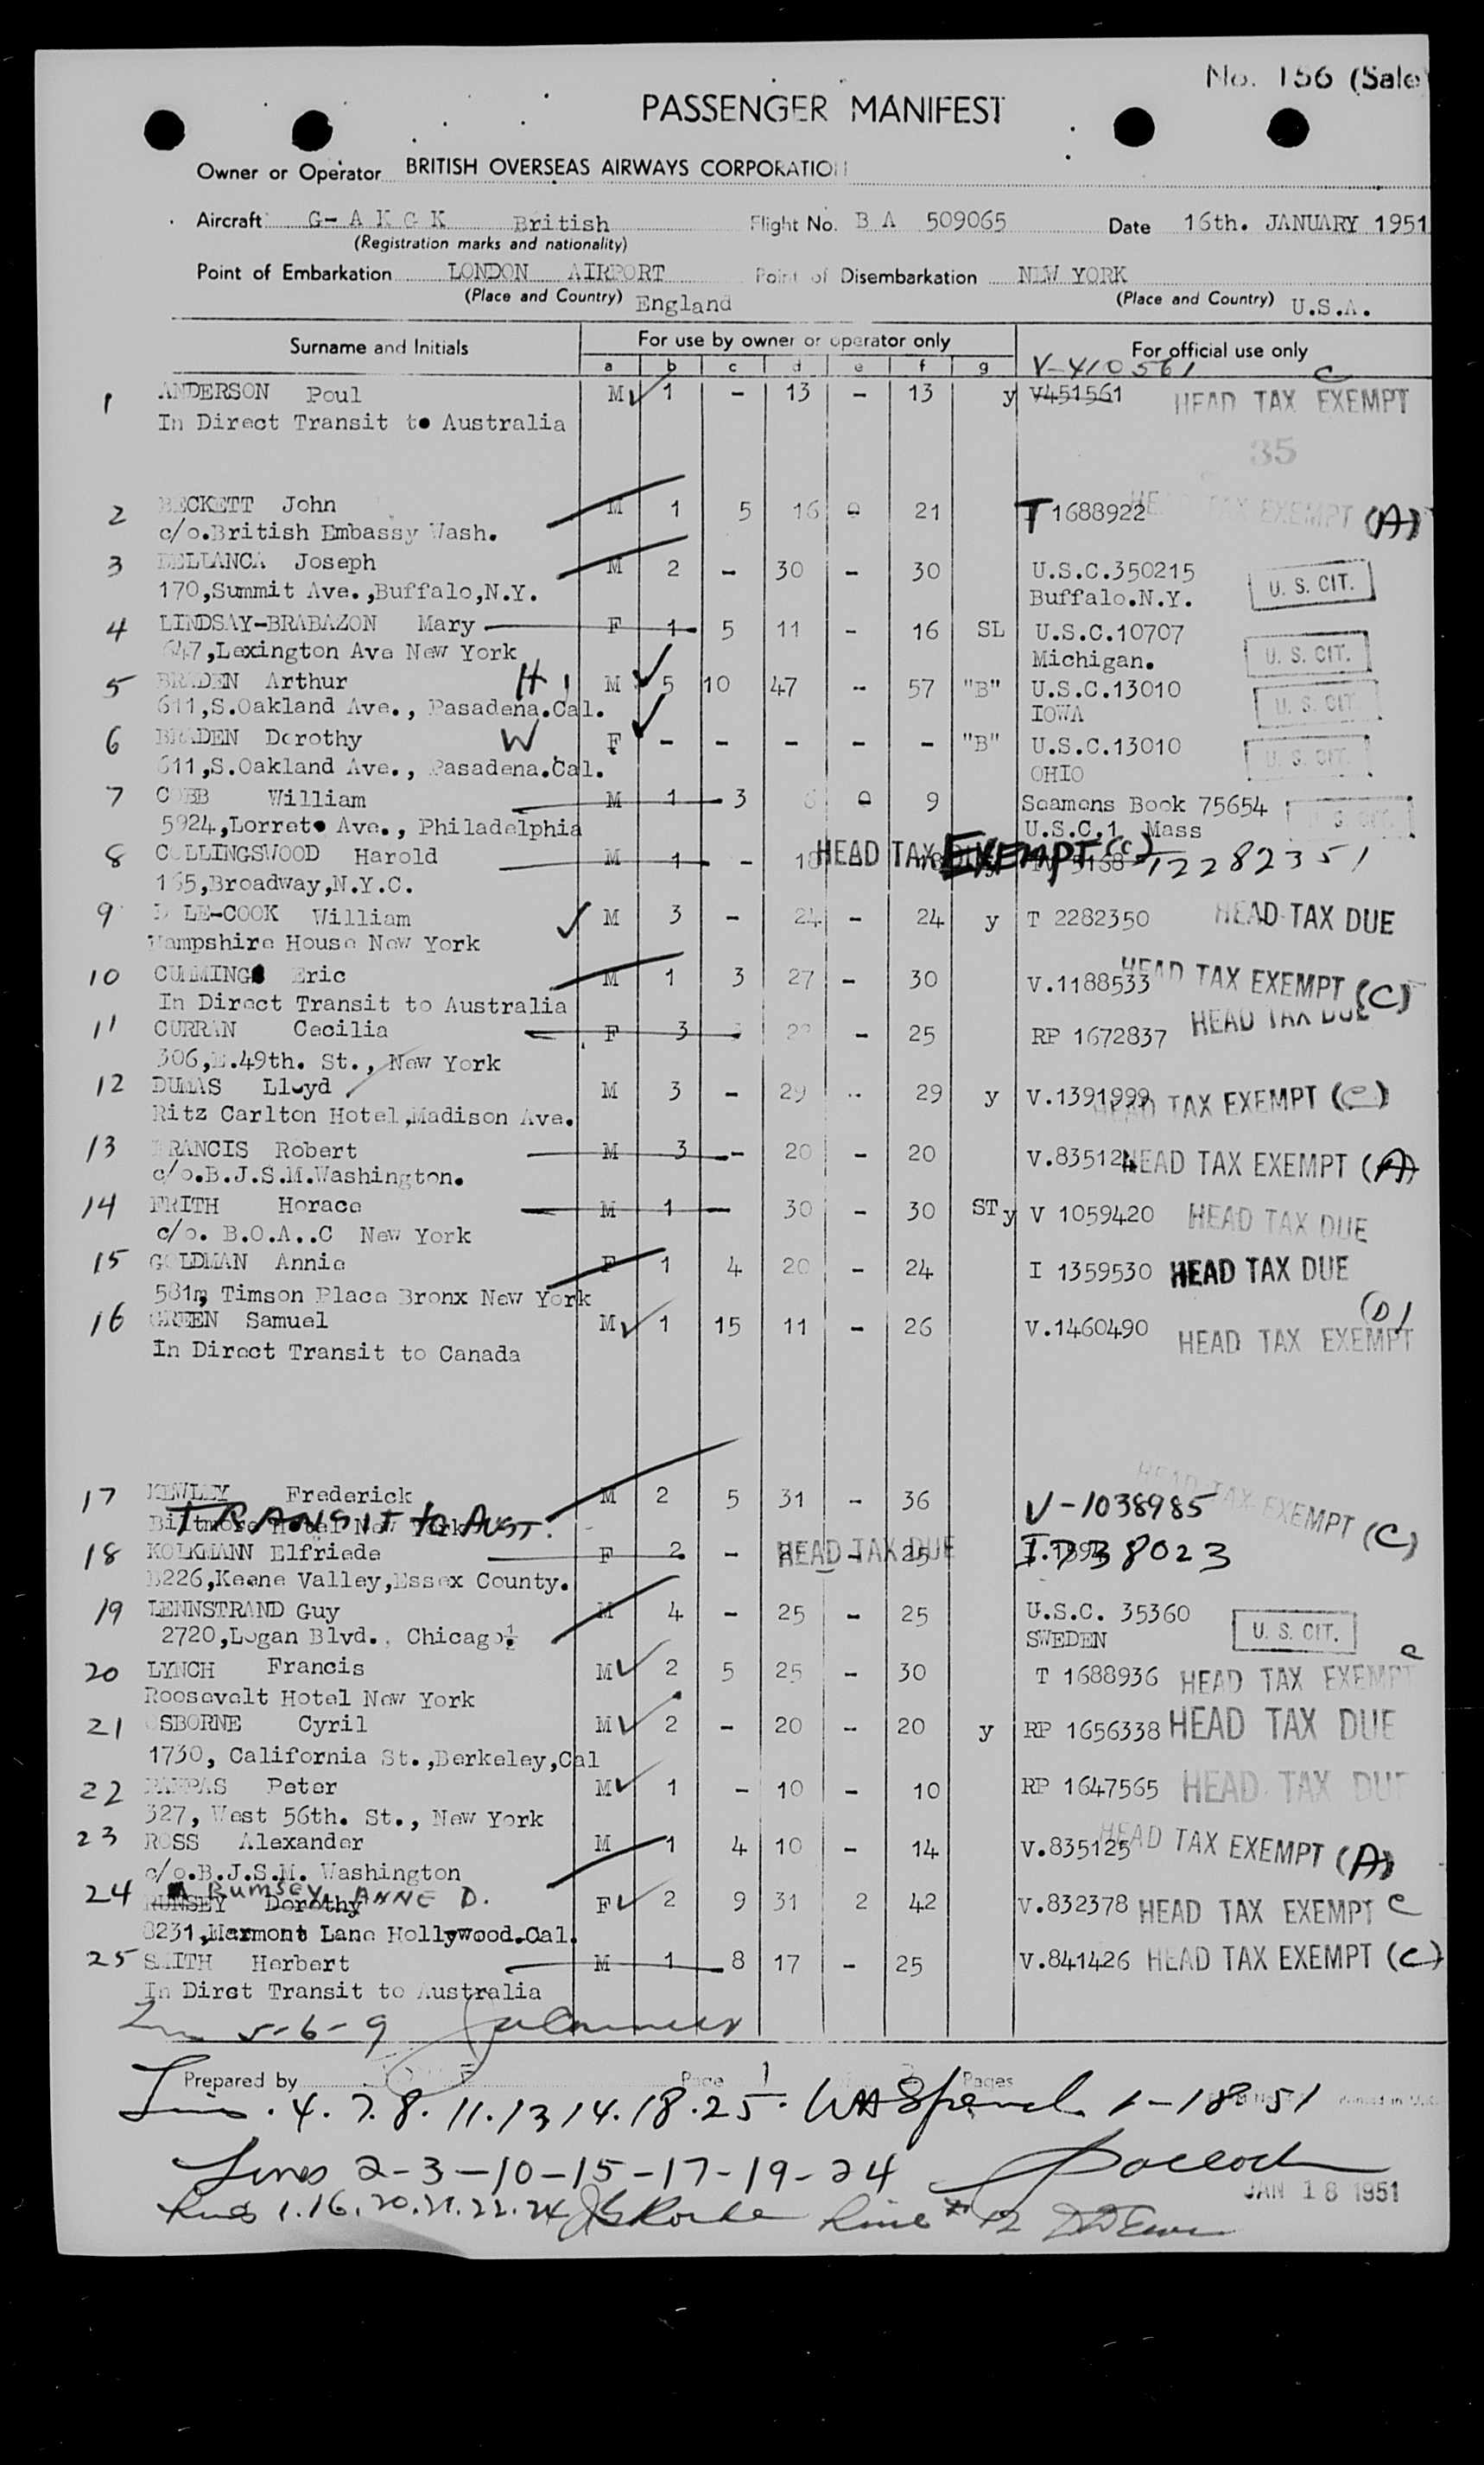 No. 156 (Sale
PASSENGER MANIFEST
Owner or Operator BRITISH OVERSEAS AIRWAYS CORPORATION
Aircraft G- A K G K British Flight No. B A 509065 Date 16th. JANUARY 1951
(Registration marks and nationality)
Point of Embarkation LONDON AIRPORT Point of Disembarkation NEW YORK
(Place and Country) England (Place and Country) U.S.A.
Surname and Initials For use by owner or operator only For official use only
a b c d e f g V-410561 C
1 ANDERSON Poul M 1 - 13 - 13 y V451561 HEAD TAX EXEMPT
In Direct Transit to Australia
35
2 BECKETT John M 1 5 16 0 21 T 1688922 HEAD TAX EXEMPT (A)
c/o.British Embassy Wash.
3 DELLANCA Joseph M 2 - 30 - 30 U.S.C.350215 U. S. CIT.
170,Summit Ave.,Buffalo,N.Y. Buffalo.N.Y.
4 LINDSAY-BRABAZON Mary F 1 5 11 - 16 SL U.S.C.10707 U. S. CIT.
647,Lexington Ave New York Michigan.
5 BRADEN Arthur H M 5 10 47 - 57 "B" U.S.C.13010 U. S. CIT
611,S.Oakland Ave., Pasadena.Cal. IOWA
6 BRADEN Dorothy W F - - - - - "B" U.S.C.13010 U. S. CIT.
611,S.Oakland Ave., Pasadena.Cal. OHIO
7 COBB William M 1 3 6 0 9 Seamens Book 75654 U. S. CIT.
5924,Lorreto Ave., Philadelphia U.S.C.1 Mass
8 COLLINGSWOOD Harold M 1 - 18 HEAD TAX EXEMPT (C) T2282351
165,Broadway,N.Y.C.
9 LE-COOK William M 3 - 24 - 24 y T 2282350 HEAD TAX DUE
Hampshire House New York
10 CUMMING Eric M 1 3 27 - 30 V.1188533 HEAD TAX EXEMPT (C)
In Direct Transit to Australia
11 CURRAN Cecilia F 3 - 25 RP 1672837 HEAD TAX DUE
306,E.49th. St., New York
12 DUMAS Lloyd M 3 - 29 - 29 y V.1391999 HEAD TAX EXEMPT (C)
Ritz Carlton Hotel,Madison Ave.
13 FRANCIS Robert M 3 - 20 - 20 V.835124 HEAD TAX EXEMPT (A)
c/o.B.J.S.M.Washington.
14 FRITH Horace M 1 - 30 - 30 ST y V 1059420 HEAD TAX DUE
c/o. B.O.A..C New York
15 GOLDMAN Annie F 1 4 20 - 24 I 1359530 HEAD TAX DUE
581m, Timson Place Bronx New York
16 GREEN Samuel M 1 15 11 - 26 V.1460490 (D) HEAD TAX EXEMPT
In Direct Transit to Canada
17 KEWLEY Frederick M 2 5 31 - 36 V-1038985 HEAD TAX EXEMPT (C)
Biltmore Hotel New York TRANSIT to AUST.
18 KOLKMANN Elfriede F 2 - HEAD TAX DUE 25 I. 8023
B226,Keene Valley,Essex County.
19 LENNSTRAND Guy M 4 - 25 - 25 U.S.C. 35360 U. S. CIT.
2720,Logan Blvd., Chicago½ SWEDEN
20 LYNCH Francis M 2 5 25 - 30 T 1688936 HEAD TAX EXEMPT C
Roosevelt Hotel New York
21 OSBORNE Cyril M 2 - 20 - 20 y RP 1656338 HEAD TAX DUE
1730, California St.,Berkeley,Cal
22 PAPPAS Peter M 1 - 10 - 10 RP 1647565 HEAD TAX DUE
327, West 56th. St., New York
23 ROSS Alexander M 1 4 10 - 14 V.835125 HEAD TAX EXEMPT (A)
c/o.B.J.S.M. Washington
Rumsey, ANNE D.
24 RUMSEY Dorothy F 2 9 31 2 42 V.832378 HEAD TAX EXEMPT C
8231,Marmont Lane Hollywood.Cal.
25 SMITH Herbert M 1 8 17 - 25 V.841426 HEAD TAX EXEMPT (C)
In Dirct Transit to Australia
5-6-9
Prepared by Page 1 Pages
Lines . 4. 7. 8. 11. 13 14. 18. 25. 1-18-51
Lines 2-3-10-15-17-19-24
JAN 18 1951
Lines 1. 16. 20. 21. 22. 24 Line # 12